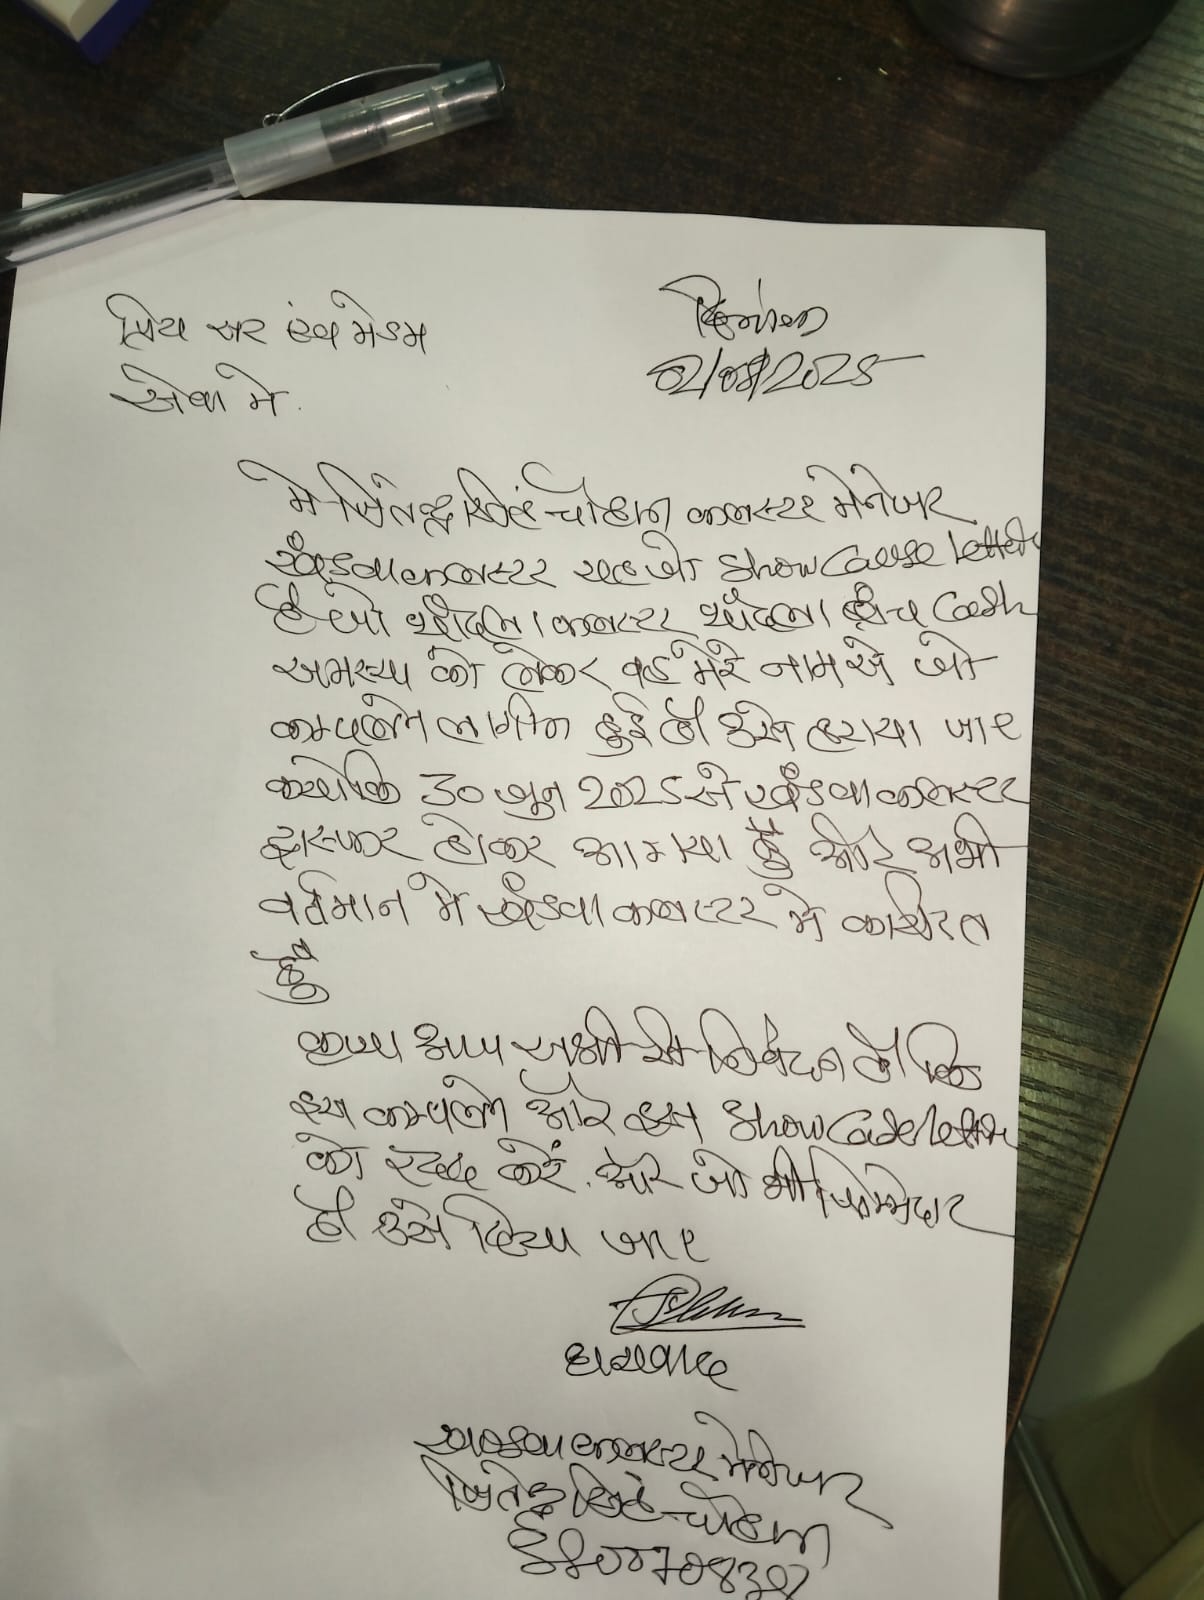 प्रिय सर एंव मेडम
दिनांक
02/08/2025
सेवा मे.
मे जितेन्द्र सिंह चौहान क्लस्टर मेनेजर
खंडवा क्लस्टर यह जो Show Cause letter
है जो क्लस्टर ब्रांच Cash
समस्या को लेकर वह मेरे नाम से जो
कम्पलेन लागीन हुई है उसे हटाया जाए
क्योकि 30 जुन 2025 से खंडवा क्लस्टर
ट्रास्फर होकर आ गया हूँ और अभी
वर्तमान मे खंडवा क्लस्टर मे कार्यरत
हूँ
कृप्या आप सभी से निवेदन है कि
इस कम्पलेन और इस Show Case letter
को रदद करें. और जो भी जिम्मेदार
है उसे दिया जाए
धन्यवाद
खण्डवा क्लस्टर मेनेजर
जितेन्द्र सिंह चौहान